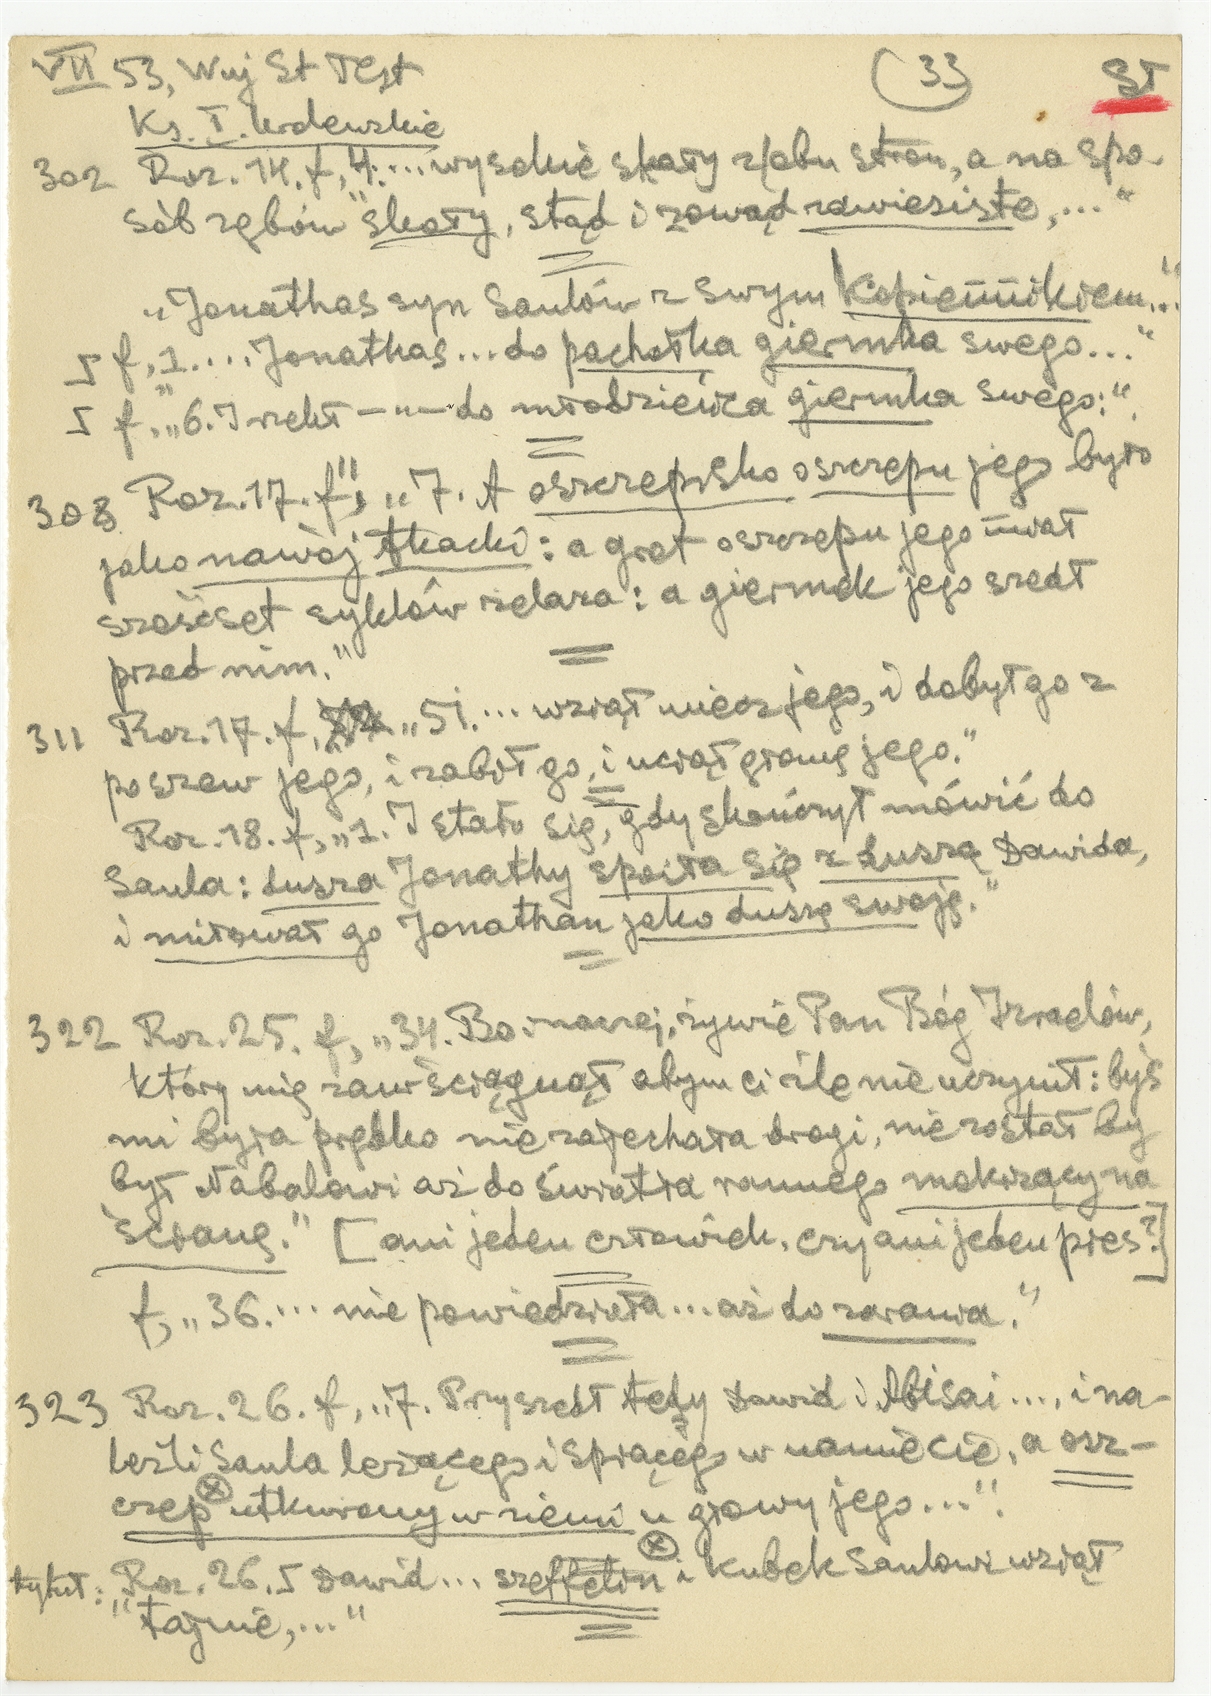 VII 53, Wuj St Test (33) ST
Ks. I. królewskie
302 Roz. 14. f, 4. ... wysokie skały z obu stron, a na spo-
sób zębów "skały, stąd i zowąd zawiesiste, ..."
"Jonathas syn Saulów z swym kopiennikiem..."
f, 1. ... Jonathas ... do pachołka giermka swego..."
f, "6. I rzekł — " — do młodzieńca giermka swego:".
308 Roz. 17. f, "7. A oszczepisko oszczepu jego było
jako nawój tkacki: a grot oszczepu jego miał
sześćset syklów żelaza: a giermek jego szedł
przed nim."
311 Roz. 17. f, "51. ... wziął miecz jego, i dobył go z
poszew jego, i zabił go, i uciął głowę jego."
Roz. 18. f, "1. I stało się, gdy skończył mówić do
Saula: dusza Jonathy spoiła się z duszą Dawida,
i miłował go Jonathan jako duszę swoję."
322 Roz. 25. f, "34. Bo inaczej, żywie Pan Bóg Izraelów,
który mię zawściągnął abym ci źle nie uczynił: byś
mi była prędko nie zajechała drogi, nie został by
był Nabalowi aż do światła rannego mokrzący na
ścianę." [ani jeden człowiek, czy ani jeden pies?]
f, "36. ... nie powiedziała ... aż do zarania."
323 Roz. 26. f, "7. Przyszedł tedy Dawid i Abisai ..., i na-
leźli Saula leżącego i śpiącego w namiecie, a osz-
czep ⊗ utkwiony w ziemi u głowy jego..."
tytuł: "Roz. 26. Dawid ... szeffelin ⊗ i kubek Saulowi wziął
tajnie, ..."